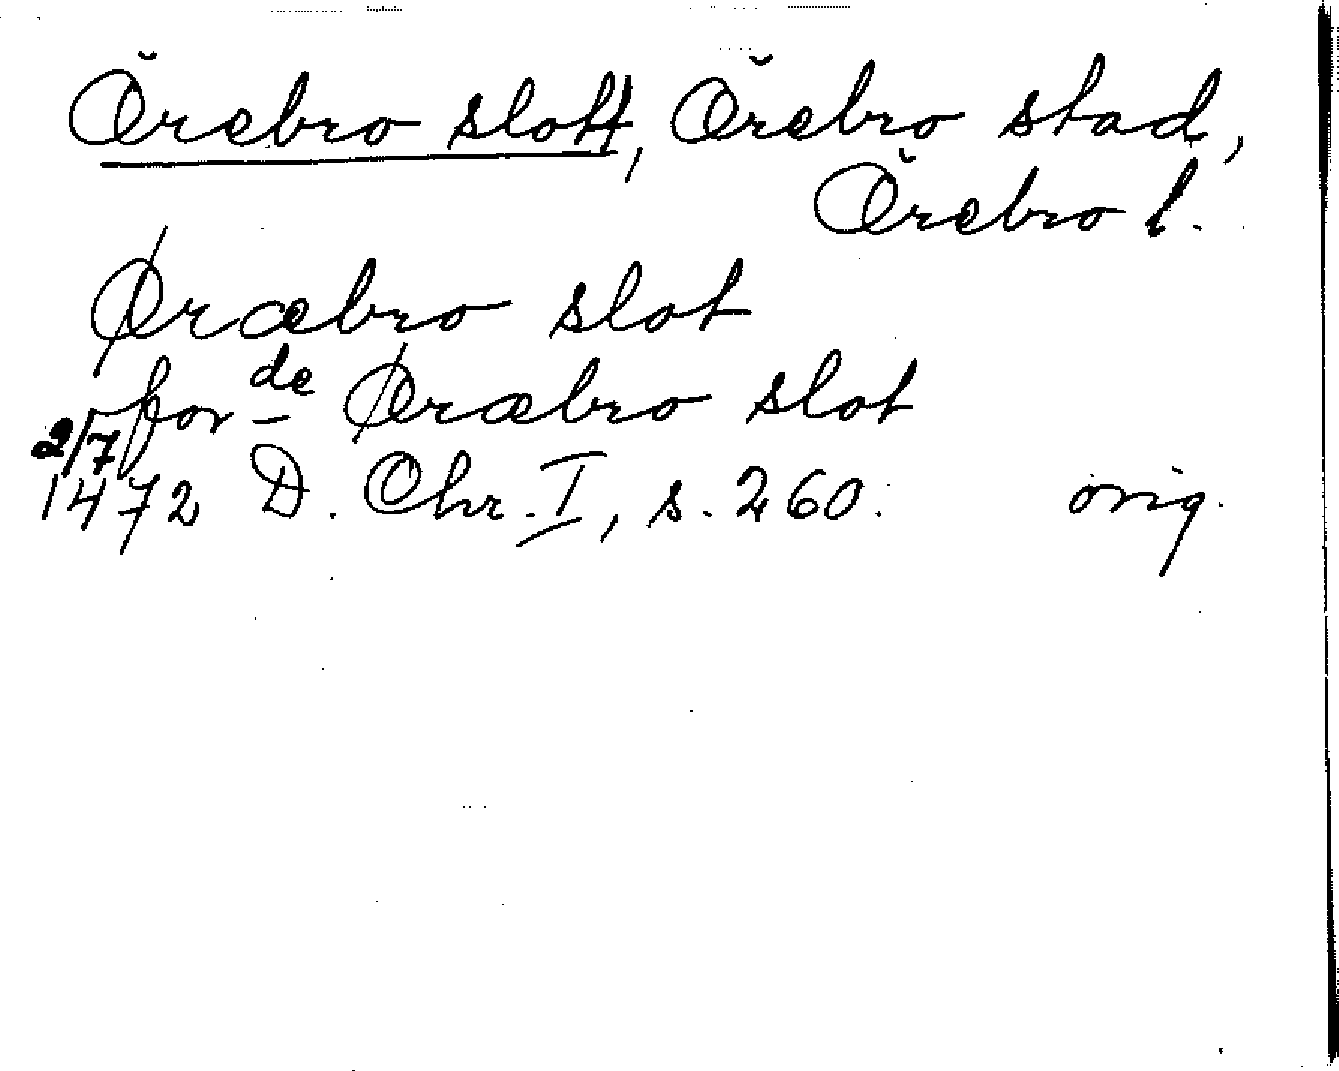 Örebro slott, Örebro stad,
Örebro l.
Øræbro slot
for de Øræbro slot
2/7
1472 D. Chr. I, s. 260. orig.